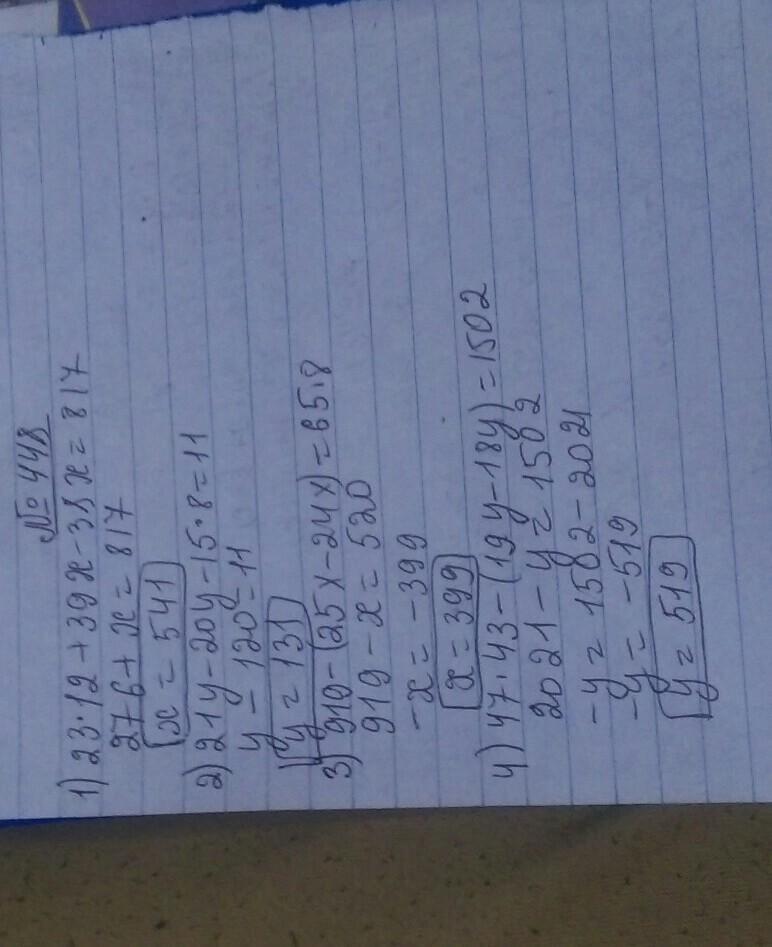 № 448
1) 23·12+39x-38x=817
276+x=817
x=541
2) 21y-20y-15·8=11
y-120=11
y=131
3) 919-(25x-24x)=65·8
919-x=520
-x=-399
x=399
4) 47·43-(19y-18y)=1502
2021-y=1502
-y=1502-2021
-y=-519
y=519